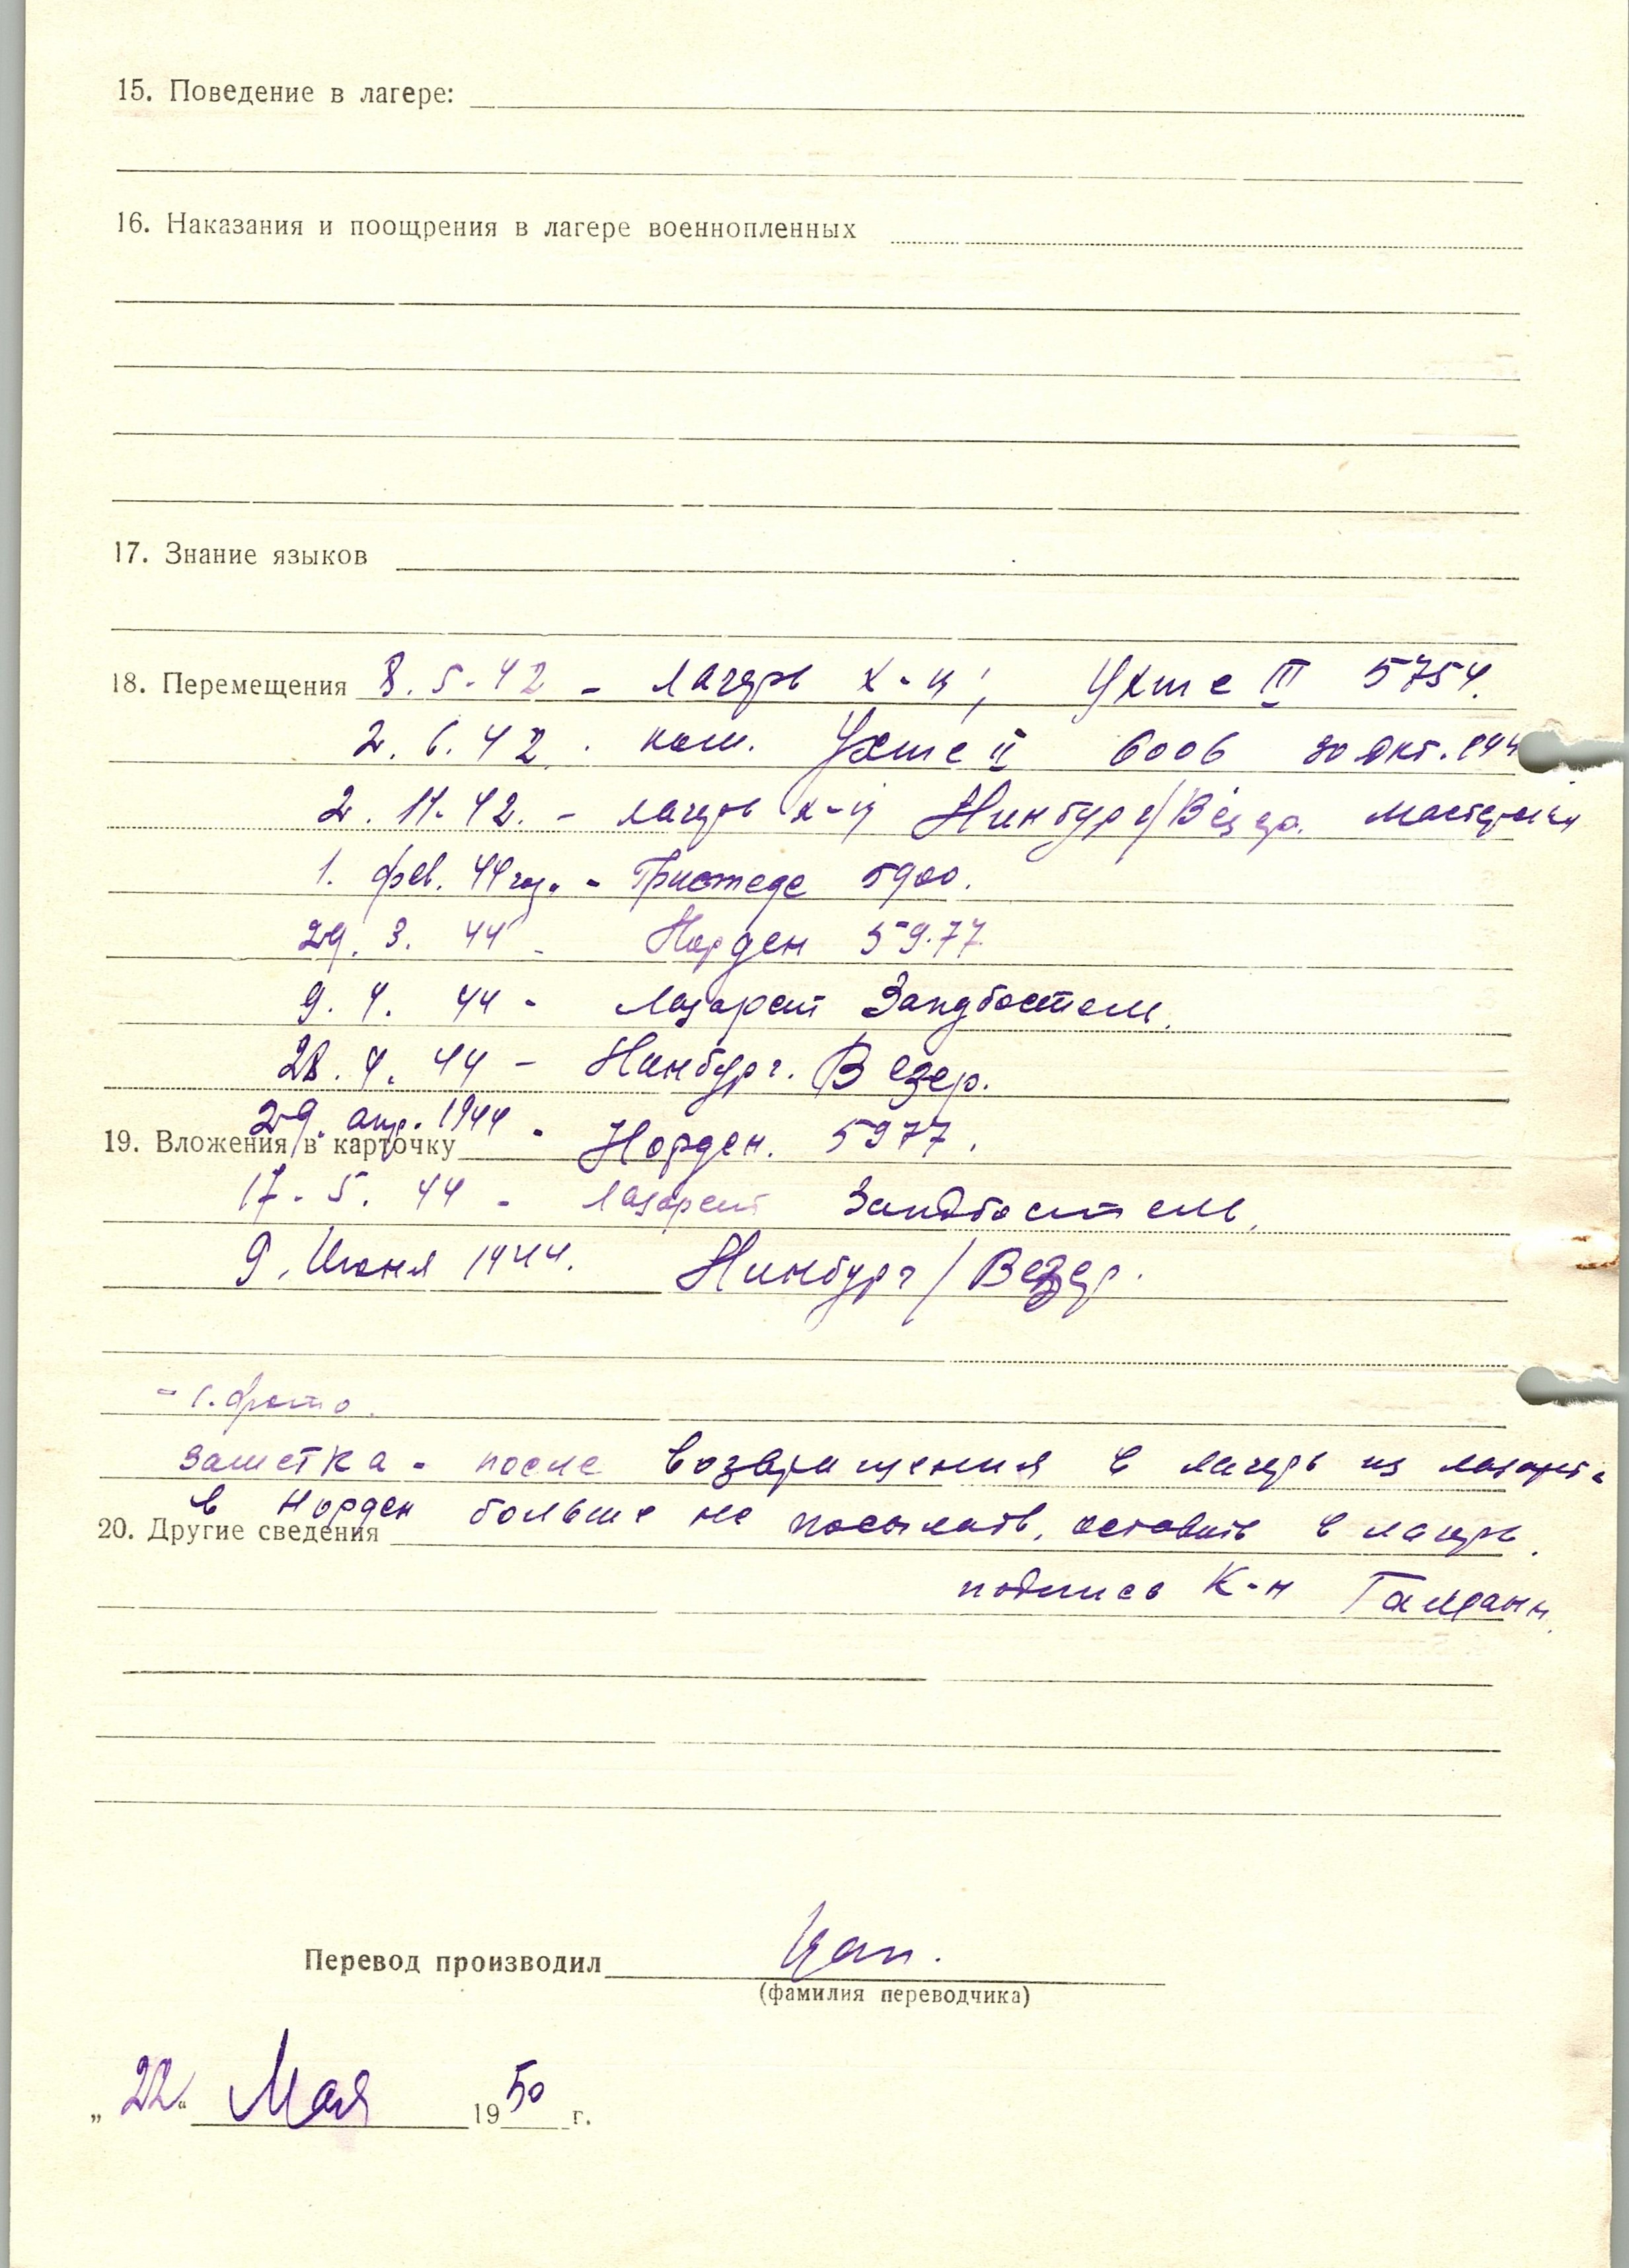 15. Поведение в лагере:
16. Наказания и поощрения в лагере военнопленных
17. Знание языков
18. Перемещения 8.5.42 - лагерь X-ц; Ухте III 5754.
2.6.42. ком. Ухте II 6006 30 окт. 194
2.11.42. - лагерь X-ц Нинбург/Везер.
1. фев. 44 год. - Гристеде 5900.
29.3.44 - Норден 59.77
9.4.44 - Лазарет Зандбостель.
28.4.44 - Нинбург. Везер.
29. апр. 1944 - Норден. 5977.
19. Вложения в карточку
17.5.44 - Лазарет Зандбостель,
9. Июня 1944. Нинбург/Везер.
- 1. фото.
заметка - после возвращения в лагерь из лазарета
в Норден больше не посылать, оставить в лагере.
20. Другие сведения
подпись К-н
Перевод производил
(фамилия переводчика)
„22“ Мая 1950 г.